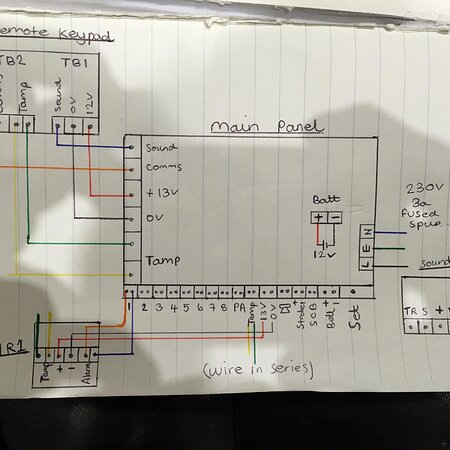 emote Keypad
TB2 TB1
Comms Tamp Sound 0V 12V
Main Panel
Sound
Comms
+ 13V
0V
Tamp
Batt
+ -
12V
N
E
L
230V
3a
fused
spur
Sound
TR S +
1 2 3 4 5 6 7 8 PA Tamp 13V 0V Strobe SCB Bell Set
+ + -
R1
Tamp + - Alarm
(wire in series)